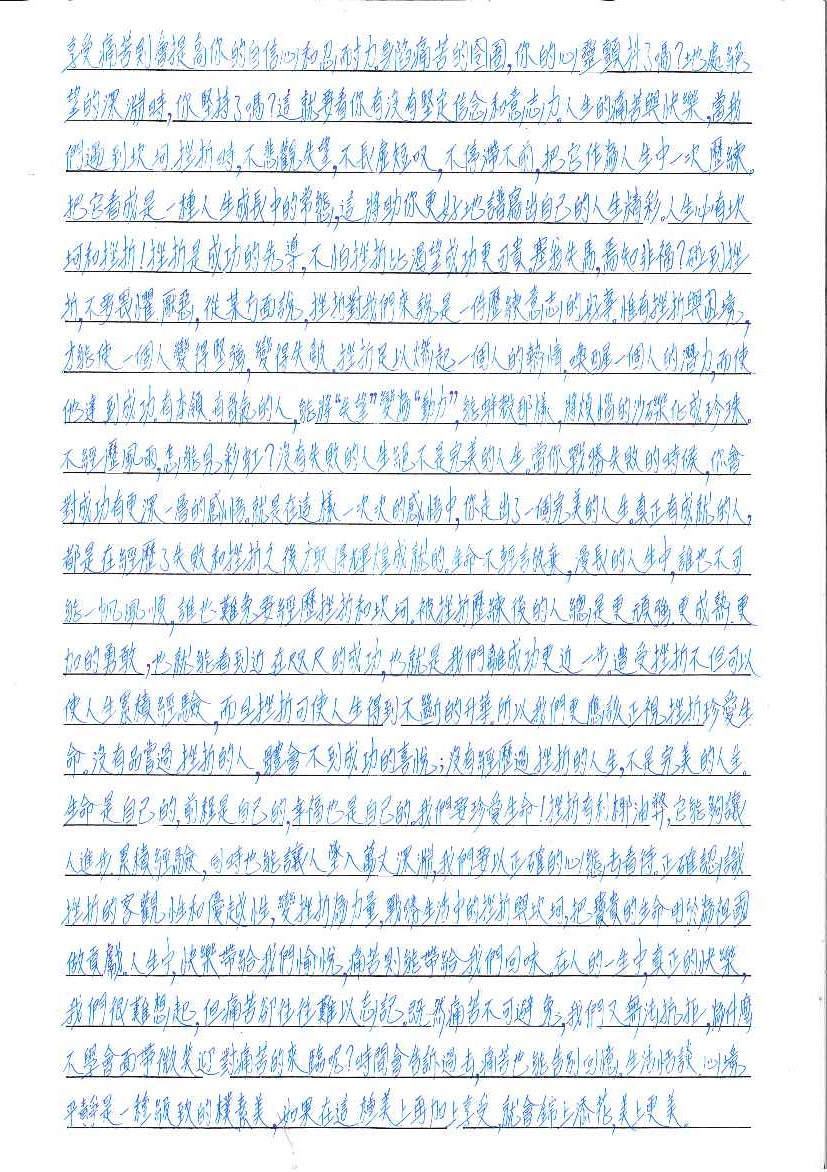 享受痛苦則會提高你的自信心和忍耐力。身陷痛苦的囹圄,你的心靈顫抖了嗎?地處絕
望的深淵時,你堅持了嗎?這就要看你有沒有堅定信念和意志力。人生的痛苦與快樂,當我
們遇到坎坷.挫折時,不悲觀失望,不長虛短嘆,不停滯不前,把它作為人生中一次歷練。
把它看成是一種人生成長中的常態,這將助你更好地譜寫出自己的人生精彩。人生必有坎
坷和挫折!挫折是成功的先導,不怕挫折比渴望成功更可貴。塞翁失馬,焉知非福?碰到挫
折,不要畏懼.厭惡,從某方面說,挫折對我們來說是一件歷練意志的好事。惟有挫折與困境,
才能使一個人變得堅強,變得失敗。挫折足以燃起一個人的熱情,喚醒一個人的潛力,而使
他達到成功。有本領.有骨氣的人,能將“失望”變為“動力”,能蚌殼那樣,將煩惱的沙礫化成珍珠。
不經歷風雨,怎能見彩虹?沒有失敗的人生絕不是完美的人生。當你戰勝失敗的時候,你會
對成功有更深一層的感悟。就是在這樣一次次的感悟中,你走出了一個完美的人生。真正有成就的人,
都是在經歷了失敗和挫折之後才取得輝煌成就的。生命不輕言放棄,漫長的人生中,誰也不可
能一帆風順,誰也難免要經歷挫折和坎坷。被挫折歷練後的人總是更頑強.更成熟.更
加的勇敢,也就能看到近在咫尺的成功,也就是我們離成功更近一步。遭受挫折不但可以
使人生累積經驗,而且挫折可使人生得到不斷的升華。所以我們更應該正視挫折珍愛生
命。沒有品嘗過挫折的人,體會不到成功的喜悅;沒有經歷過挫折的人生,不是完美的人生。
生命是自己的,前程是自己的,幸福也是自己的。我們要珍愛生命!挫折有利椰油弊,它能夠讓
人進步.累積經驗,同時也能讓人墜入萬丈深淵,我們要以正確的心態去看待。正確認識
挫折的客觀性和優越性,變挫折為力量,戰勝生活中的挫折與坎坷,把寶貴的生命用於為祖國
做貢獻。人生中,快樂帶給我們愉悅,痛苦則能帶給我們回味。在人的一生中,真正的快樂,
我們很難想起,但痛苦卻往往難以忘記。既然痛苦不可避免,我們又無法抗拒,為什麼
不學會面帶微笑迎對痛苦的來臨呢?時間會告訴過去,痛苦也能告別回憶。生活恬談.心境
平靜是一種極致的樸素美,如果在這種美上再加上享受,就會錦上添花,美上更美。